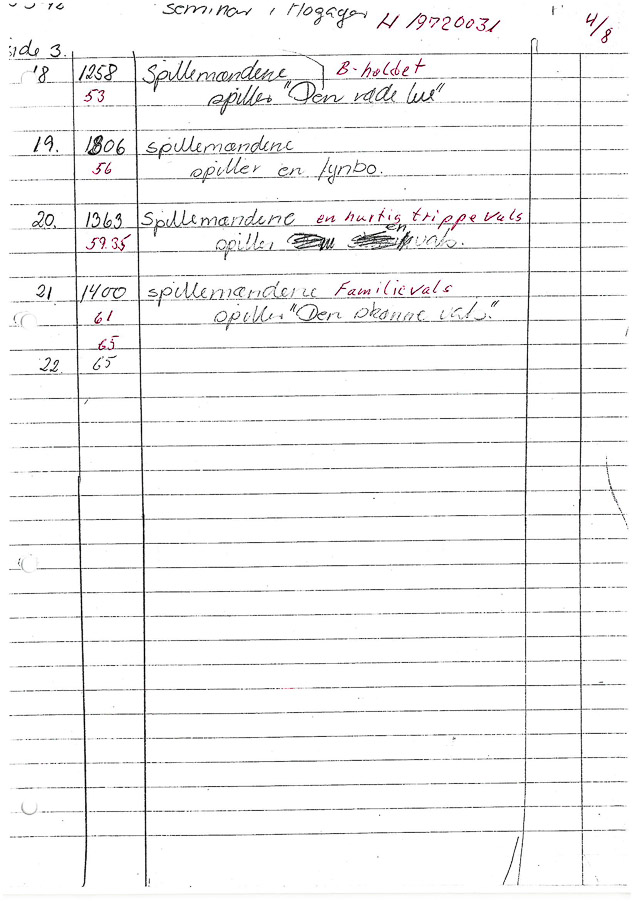 seminar i Hogager H 19720031 4/8
side 3.
18 1258 Spillemændene B-holdet
53 spiller "Den røde lue"
19. 1306 spillemændene
56 spiller en fynbo.
20. 1363 Spillemændene en hurtig trippevals
59.35 spiller en vals.
21 1400 spillemændene Familievals
61 spiller "Den skønne vals."
65
22 65